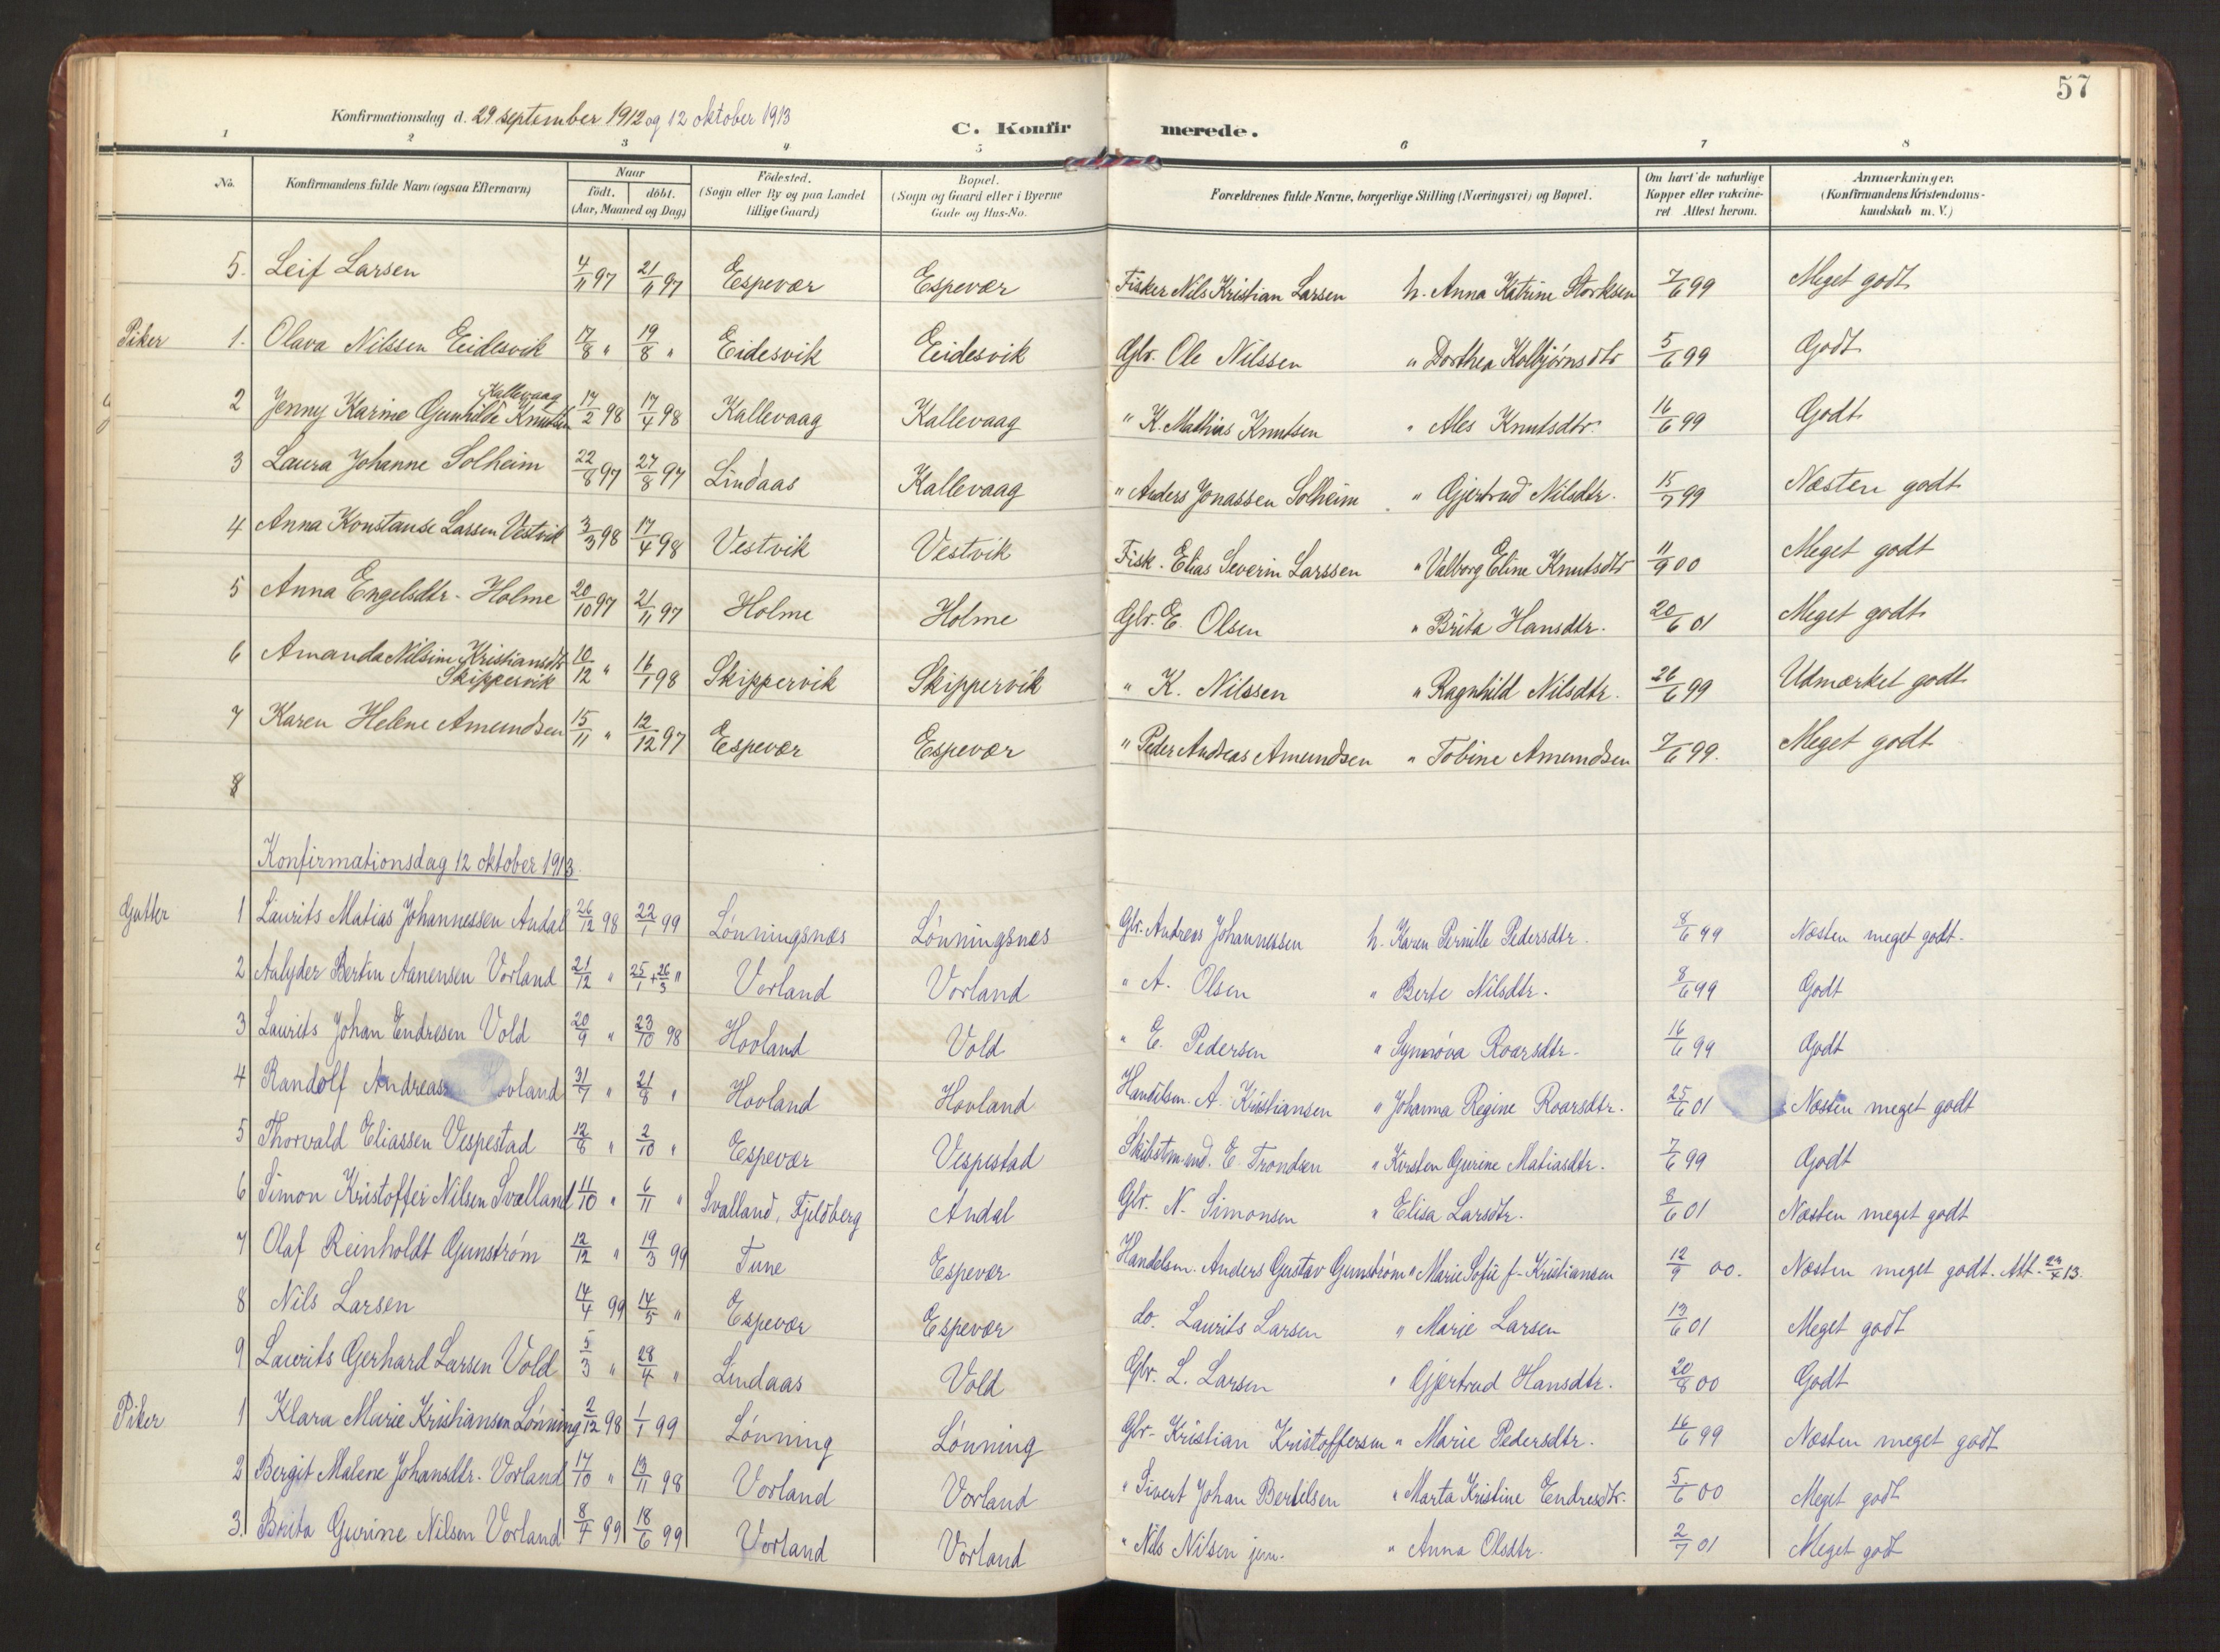 57
Konfirmationsdag d. 29 september 1912 og 12 oktober 1913
C. Konfirmerede.
1 2 3 4 5 6 7 8
No. Konfirmandens fulde Navn (ogsaa Efternavn) Naar födt. döbt. (Aar, Maaned og Dag) Födested. (Sogn eller By og paa Landet tillige Gaard) Bopæl. (Sogn og Gaard eller i Byerne Gade og Hus-No. Forældrenes fulde Navne, borgerlige Stilling (Næringsvei) og Bopæl. Om havt de naturlige Kopper eller vakcineret Attest herom. Anmærkninger. (Konfirmandens Kristendomskundskab m. V.)
5. Leif Larsen 4/11 97 21/11 97 Espevær Espevær Fisker Nils Kristian Larsen h. Anna Katrine Storksen 7/6 99 Meget godt
Piker 1. Olava Nilssen Eidesvik 17/8 " 19/8 " Eidesvik Eidesvik Gbr. Ole Nilssen " Dorthea Kolbjørnsdtr 5/6 99 Godt
2 Jenny Karine Gunhilde Knutsen Kallevaag 17/2 98 17/4 98 Kallevaag Kallevaag " K. Mathias Knutsen " Ales Knutsdtr. 16/6 99 Godt
3 Laura Johanne Solheim 22/8 97 27/8 97 Lindaas Kallevaag " Anders Jonassen Solheim " Gjertrud Nilsdtr. 15/7 99 Næsten godt
4 Anna Konstanse Larsen Vestvik 3/3 98 17/4 98 Vestvik Vestvik Fisk. Elias Severin Larssen " Valborg Eline Knutsdtr 11/9 00 Meget godt
5 Anna Engelsdtr. Holme 20/10 97 21/11 97 Holme Holme Gbr. E. Olsen " Brita Hansdtr. 20/6 01 Meget godt
6 Amanda Nilsine Kristiansdtr Skippervik 10/12 " 16/1 98 Skippervik Skippervik " K. Nilssen " Ragnhild Nilsdtr. 26/6 99 Udmærket godt
7 Karen Helene Amundsen 15/11 " 12/12 97 Espevær Espevær " Peder Andreas Amundsen " Tobine Amundsen 7/6 99. Meget godt
8
Konfirmationsdag 12 oktober 1913.
Gutter 1 Laurits Matias Johannessen Andal 26/12 98 22/1 99 Lønningsnæs Lønningsnes Gbr. Andreas Johannessen h. Karen Pernille Pedersdtr. 8/6 99 Næsten meget godt.
2 Aalyder Bertin Aanensen Vorland 21/12 " 25/1 + 26/3 " Vorland Vorland " A. Olsen " Berte Nilsdtr. 8/6 99 Godt
3 Laurits Johan Endresen Vold 20/9 " 23/10 98 Hovland Vold " E. Pedersen " Synnøva Roarsdtr. 16/6 99 Godt
4 Randolf Andreas Hovland 31/7 " 21/8 " Hovland Hovland Handelsm. A. Kristiansen " Johanna Regine Roarsdtr. 25/6 01 Næsten meget godt
5 Thorvald Eliassen Vespestad 12/8 " 2/10 " Espevær Vespestad E. Trondsen " Kirsten Gurine Matiasdtr. 7/6 99 Godt
6 Simon Kristoffer Nilsen Svælland 11/10 " 6/11 " Svalland, Fjeldberg Andal Gbr. N. Simonsen " Elisa Larsdtr. 8/6 01 Næsten meget godt
7 Olaf Reinholdt Gunstrøm 12/12 " 19/3 99 Tune Espevær Handelsm. Anders Gustav Gunstrøm " Marie Sofie f. Kristiansen 12/9 00. Næsten meget godt. Att. 24/4 13.
8 Nils Larsen 14/4 99 14/5 " Espevær Espevær do. Laurits Larsen " Marie Larsen 13/6 01 Meget godt
9 Laurits Gerhard Larsen Vold 5/3 " 28/4 " Lindaas Vold Gbr. L. Larsen " Gjertrud Hansdtr. 20/8 00 Godt
Piker 1 Klara Marie Kristiansen Lønning 2/12 98 1/1 99 Lønning Lønning Gbr. Kristian Kristoffersen " Marie Pedersdtr. 16/6 99 Næsten meget godt
2 Bergit Malene Johansdtr. Vorland 17/10 " 13/11 98 Vorland Vorland " Sivert Johan Bertilsen " Marta Kristine Endresdtr. 5/6 00 Meget godt
3. Brita Gurine Nilsen Vorland 8/4 99 18/6 99 Vorland Vorland " Nils Nilsen jun. " Anna Olsdtr. 2/7 01 Meget godt